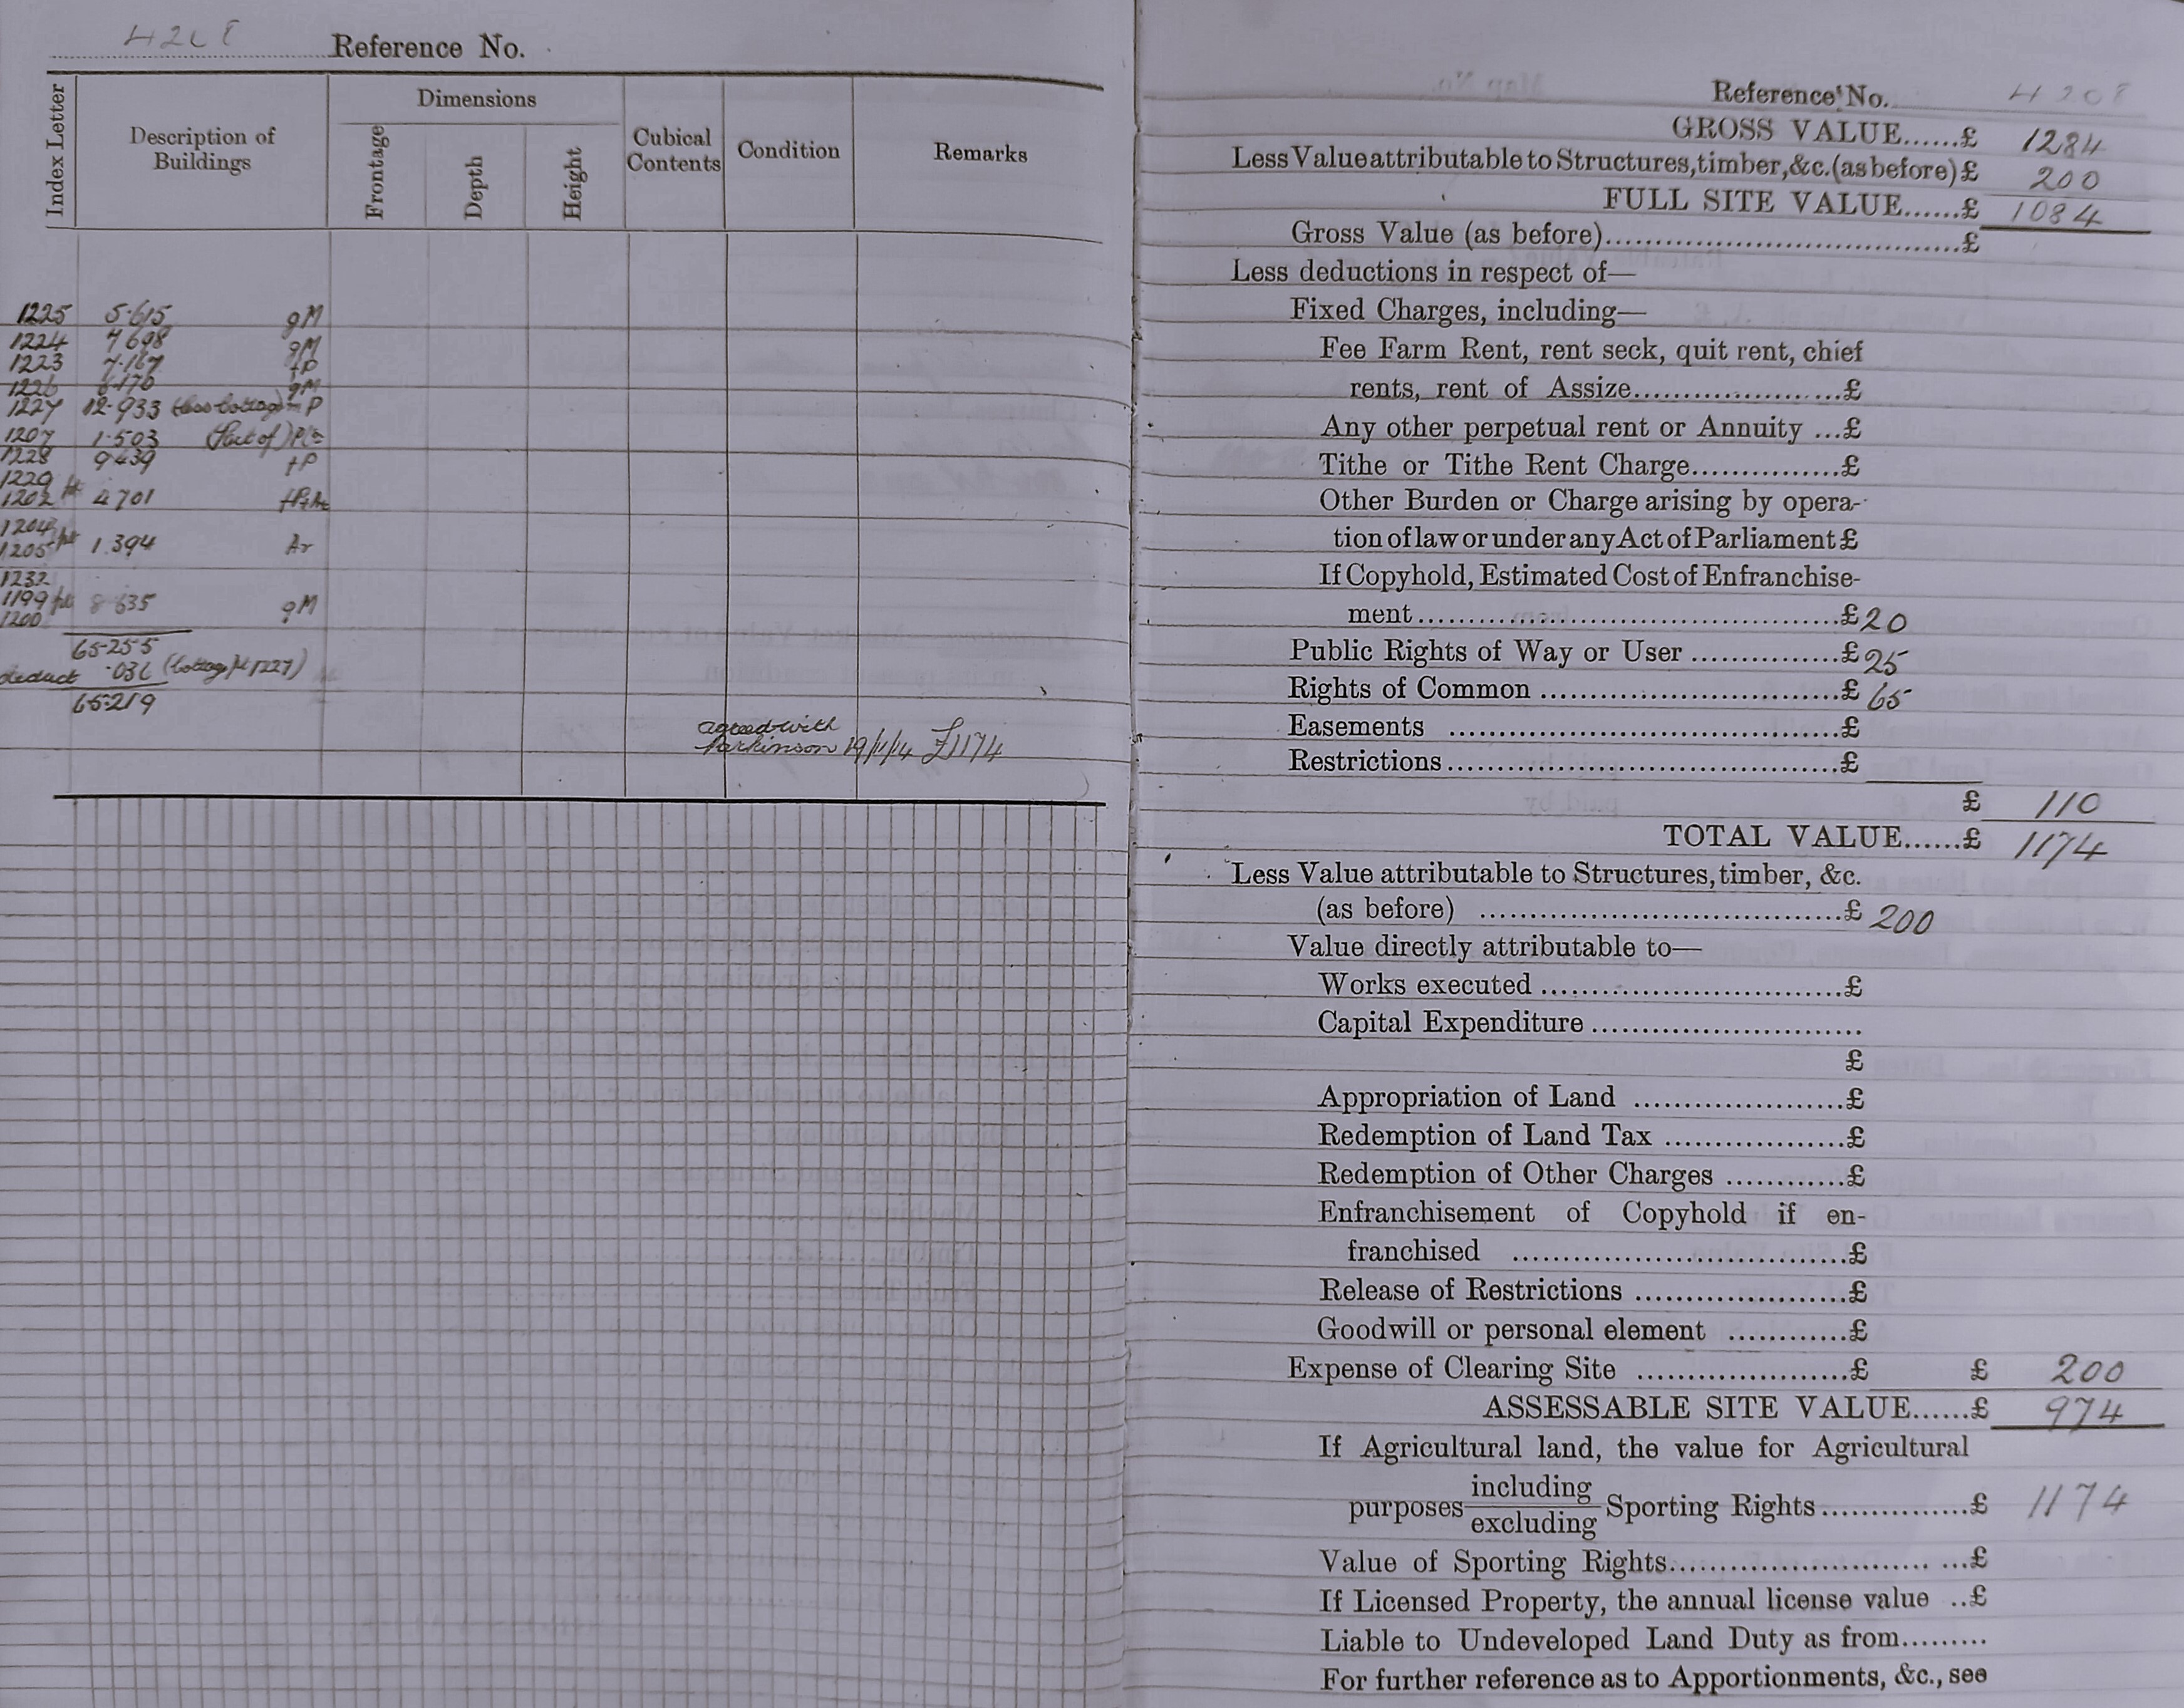 4208 Reference No.
Index Letter
Description of Buildings
Dimensions
Frontage
Depth
Height
Cubical Contents
Condition
Remarks
1225 5.615 gM
1224 7.698 gM
1223 7.167 +P
1226 6.170 gM
1227 12.933 (less Cottage) P
1207 1.503 (Part of)
1228 9.439 +P
1229
1202 pt 4.701
1204
1205 pt 1.394 Ar
1232
1199 pt 8.635 gM
1200
65.255
deduct .036 (Cottage pt 1227)
65.219
agreed with
Parkinson 19/11/14 £1174
Reference No. 4208
GROSS VALUE......£ 1284
Less Value attributable to Structures, timber, &c. (as before) £ 200
FULL SITE VALUE......£ 1084
Gross Value (as before)....................................£
Less deductions in respect of—
Fixed Charges, including—
Fee Farm Rent, rent seck, quit rent, chief
rents, rent of Assize......................£
Any other perpetual rent or Annuity ...£
Tithe or Tithe Rent Charge...............£
Other Burden or Charge arising by opera-
tion of law or under any Act of Parliament £
If Copyhold, Estimated Cost of Enfranchise-
ment..........................................£ 20
Public Rights of Way or User ...............£ 25
Rights of Common ..............................£ 65
Easements .......................................£
Restrictions.......................................£
£ 110
TOTAL VALUE......£ 1174
Less Value attributable to Structures, timber, &c.
(as before) ....................................£ 200
Value directly attributable to—
Works executed ..............................£
Capital Expenditure ..........................
£
Appropriation of Land .....................£
Redemption of Land Tax ..................£
Redemption of Other Charges ............£
Enfranchisement of Copyhold if en-
franchised .................................£
Release of Restrictions .....................£
Goodwill or personal element ............£
Expense of Clearing Site .....................£ £ 200
ASSESSABLE SITE VALUE......£ 974
If Agricultural land, the value for Agricultural
purposes including/excluding Sporting Rights...............£ 1174
Value of Sporting Rights.......................... ...£
If Licensed Property, the annual license value ..£
Liable to Undeveloped Land Duty as from.........
For further reference as to Apportionments, &c., see